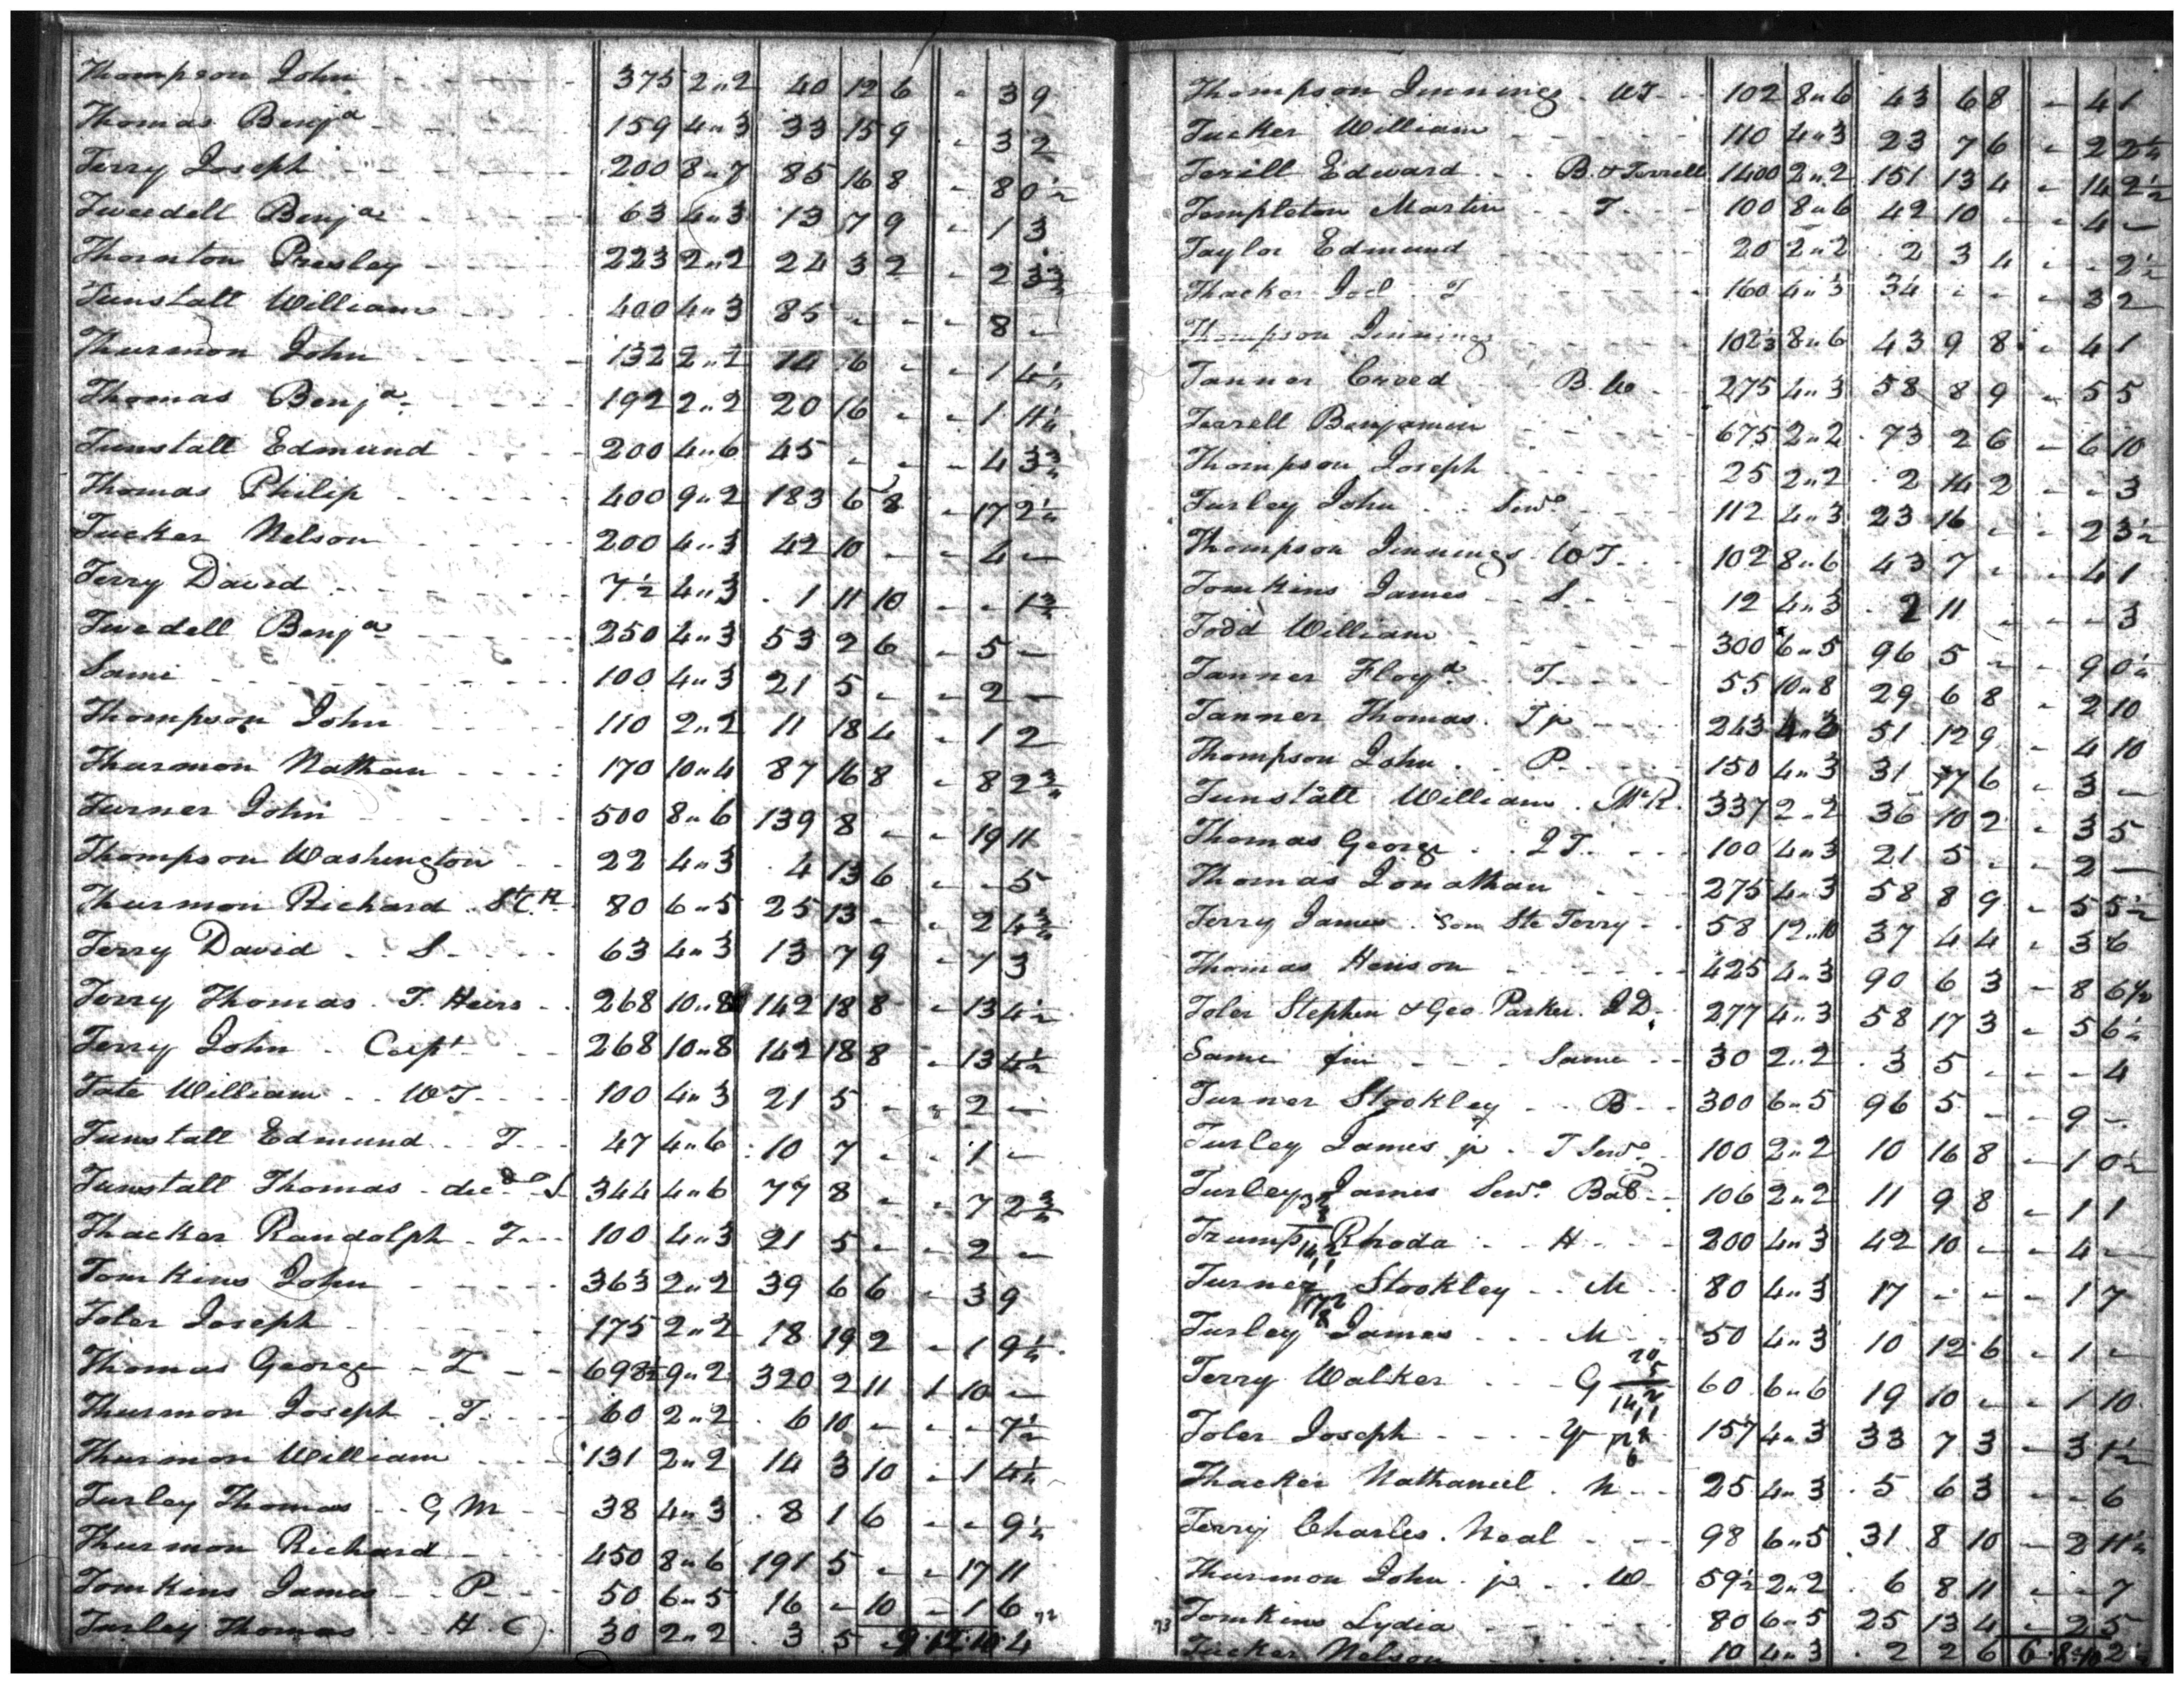 Thompson John 375 2"2 40 12 6 - 3 9
Thomas Benja 159 4"3 33 15 9 - 3 2
Terry Joseph 200 8"7 85 16 8 - 8 0½
Tweedell Benja 63 4"3 13 7 9 - 1 3
Thornton Presley 223 2"2 24 3 2 - 2 3¾
Tunstall William 400 4"3 85 - - - 8 -
Thurmon John 132 2"2 14 6 - - 1 4½
Thomas Benja 192 2"2 20 16 - - 1 11¼
Tunstall Edmund 200 4"6 45 - - - 4 3¾
Thomas Philip 400 9"2 183 6 8 - 17 2¼
Tucker Nelson 200 4"3 42 10 - - 4 -
Terry David 7½ 4"3 1 11 10 - - 1¾
Twedell Benja 250 4"3 53 2 6 - 5 -
Same 100 4"3 21 5 - - 2 -
Thompson John 110 2"2 11 18 4 - 1 2
Thurmon Nathan 170 10"4 87 16 8 - 8 2¾
Turner John 500 8"6 139 8 - - 19 11
Thompson Washington 22 4"3 4 13 6 - - 5
Thurmon Richard StCk 80 6"5 25 13 - - 2 4¾
Terry David S 63 4"3 13 7 9 - 1 3
Terry Thomas T. Heirs 268 10"8 142 18 8 - 13 4½
Terry John Capt 268 10"8 142 18 8 - 13 4½
Tate William WT 100 4"3 21 5 - - 2 -
Tunstall Edmund T 47 4"6 10 7 - - 1 -
Tunstall Thomas decd S 344 4"6 77 8 - - 7 2¾
Thacker Randolph T 100 4"3 21 5 - - 2 -
Tomkins John 363 2"2 39 6 6 - 3 9
Toler Joseph 175 2"2 18 19 2 - 1 9¼
Thomas George T 698½ 9"2 320 2 11 1 10 -
Thurmon Joseph T 60 2"2 6 10 - - - 7½
Thurmon William 131 2"2 14 3 10 - 1 4¼
Turley Thomas G M 38 4"3 8 1 6 - - 9¼
Thurmon Richard 450 8"6 191 5 - - 17 11
Tomkins James P 50 6"5 16 - 10 - 1 6
Turley Thomas H. C 30 2"2 3 5 - 9.12.10.4
Thompson Jinnings WT 102 8"6 43 6 8 - 4 1
Tucker William 110 4"3 23 7 6 - 2 2¼
Terill Edward B. & Terrell 1400 2"2 151 13 4 - 14 2½
Templeton Martin T 100 8"6 42 10 - - 4 -
Taylor Edmund 20 2"2 2 3 4 - - 2½
Thacker Joel T 160 4"3 34 - - - 3 2
Thompson Jinnings 102⅓ 8"6 43 9 8 - 4 1
Tanner Creed B. 275 4"3 58 8 9 - 5 5
Terrell Benjamin 675 2"2 73 2 6 - 6 10
Thompson Joseph 25 2"2 2 14 2 - - 3
Turley John Sero 112 4"3 23 16 - - 2 3½
Thompson Jinnings WT 102 8"6 43 7 - - 4 1
Tomkins James S 12 4"3 2 11 - - - 3
Todd William 300 6"5 96 5 - - 9 0¼
Tanner Floyd T 55 10"8 29 6 8 - 2 10
Tanner Thomas T p 243 4"3 51 12 9 - 4 10
Thompson John P 150 4"3 31 17 6 - 3 -
Tunstall William McR 337 2"2 36 10 2 - 3 5
Thomas George J T 100 4"3 21 5 - - 2 -
Thomas Jonathan 275 4"3 58 8 9 - 5 5½
Terry James Son Ste Terry 58 12"10 37 4 4 - 3 6
Thomas Henson 425 4"3 90 6 3 - 8 6½
Toler Stephen & Geo Parker J D 277 4"3 58 17 3 - 5 6½
Same for Same 30 2"2 3 5 - - - 4
Turner Stookley B 300 6"5 96 5 - - 9 -
Turley James jr T Sero 100 2"2 10 16 8 - 1 0½
Turley James Sero 106 2"2 11 9 8 - 1 1
Trump Rhoda H 200 4"3 42 10 - - 4 -
Turner Stookley M 80 4"3 17 - - - 1 7
Turley James M 50 4"3 10 12 6 - 1 -
Terry Walker G 60 6"6 19 10 - - 1 10
Toler Joseph 157 4"3 33 7 3 - 3 1½
Thacker Nathaniel N 25 4"3 5 6 3 - - 6
Terry Charles Neal 98 6"5 31 8 10 - 2 11¼
Thurmon John jr W 59½ 2"2 6 8 11 - - 7
Tomkins Lydia 80 6"5 25 13 4 - 2 5
Tucker Nelson 10 4"3 2 2 6